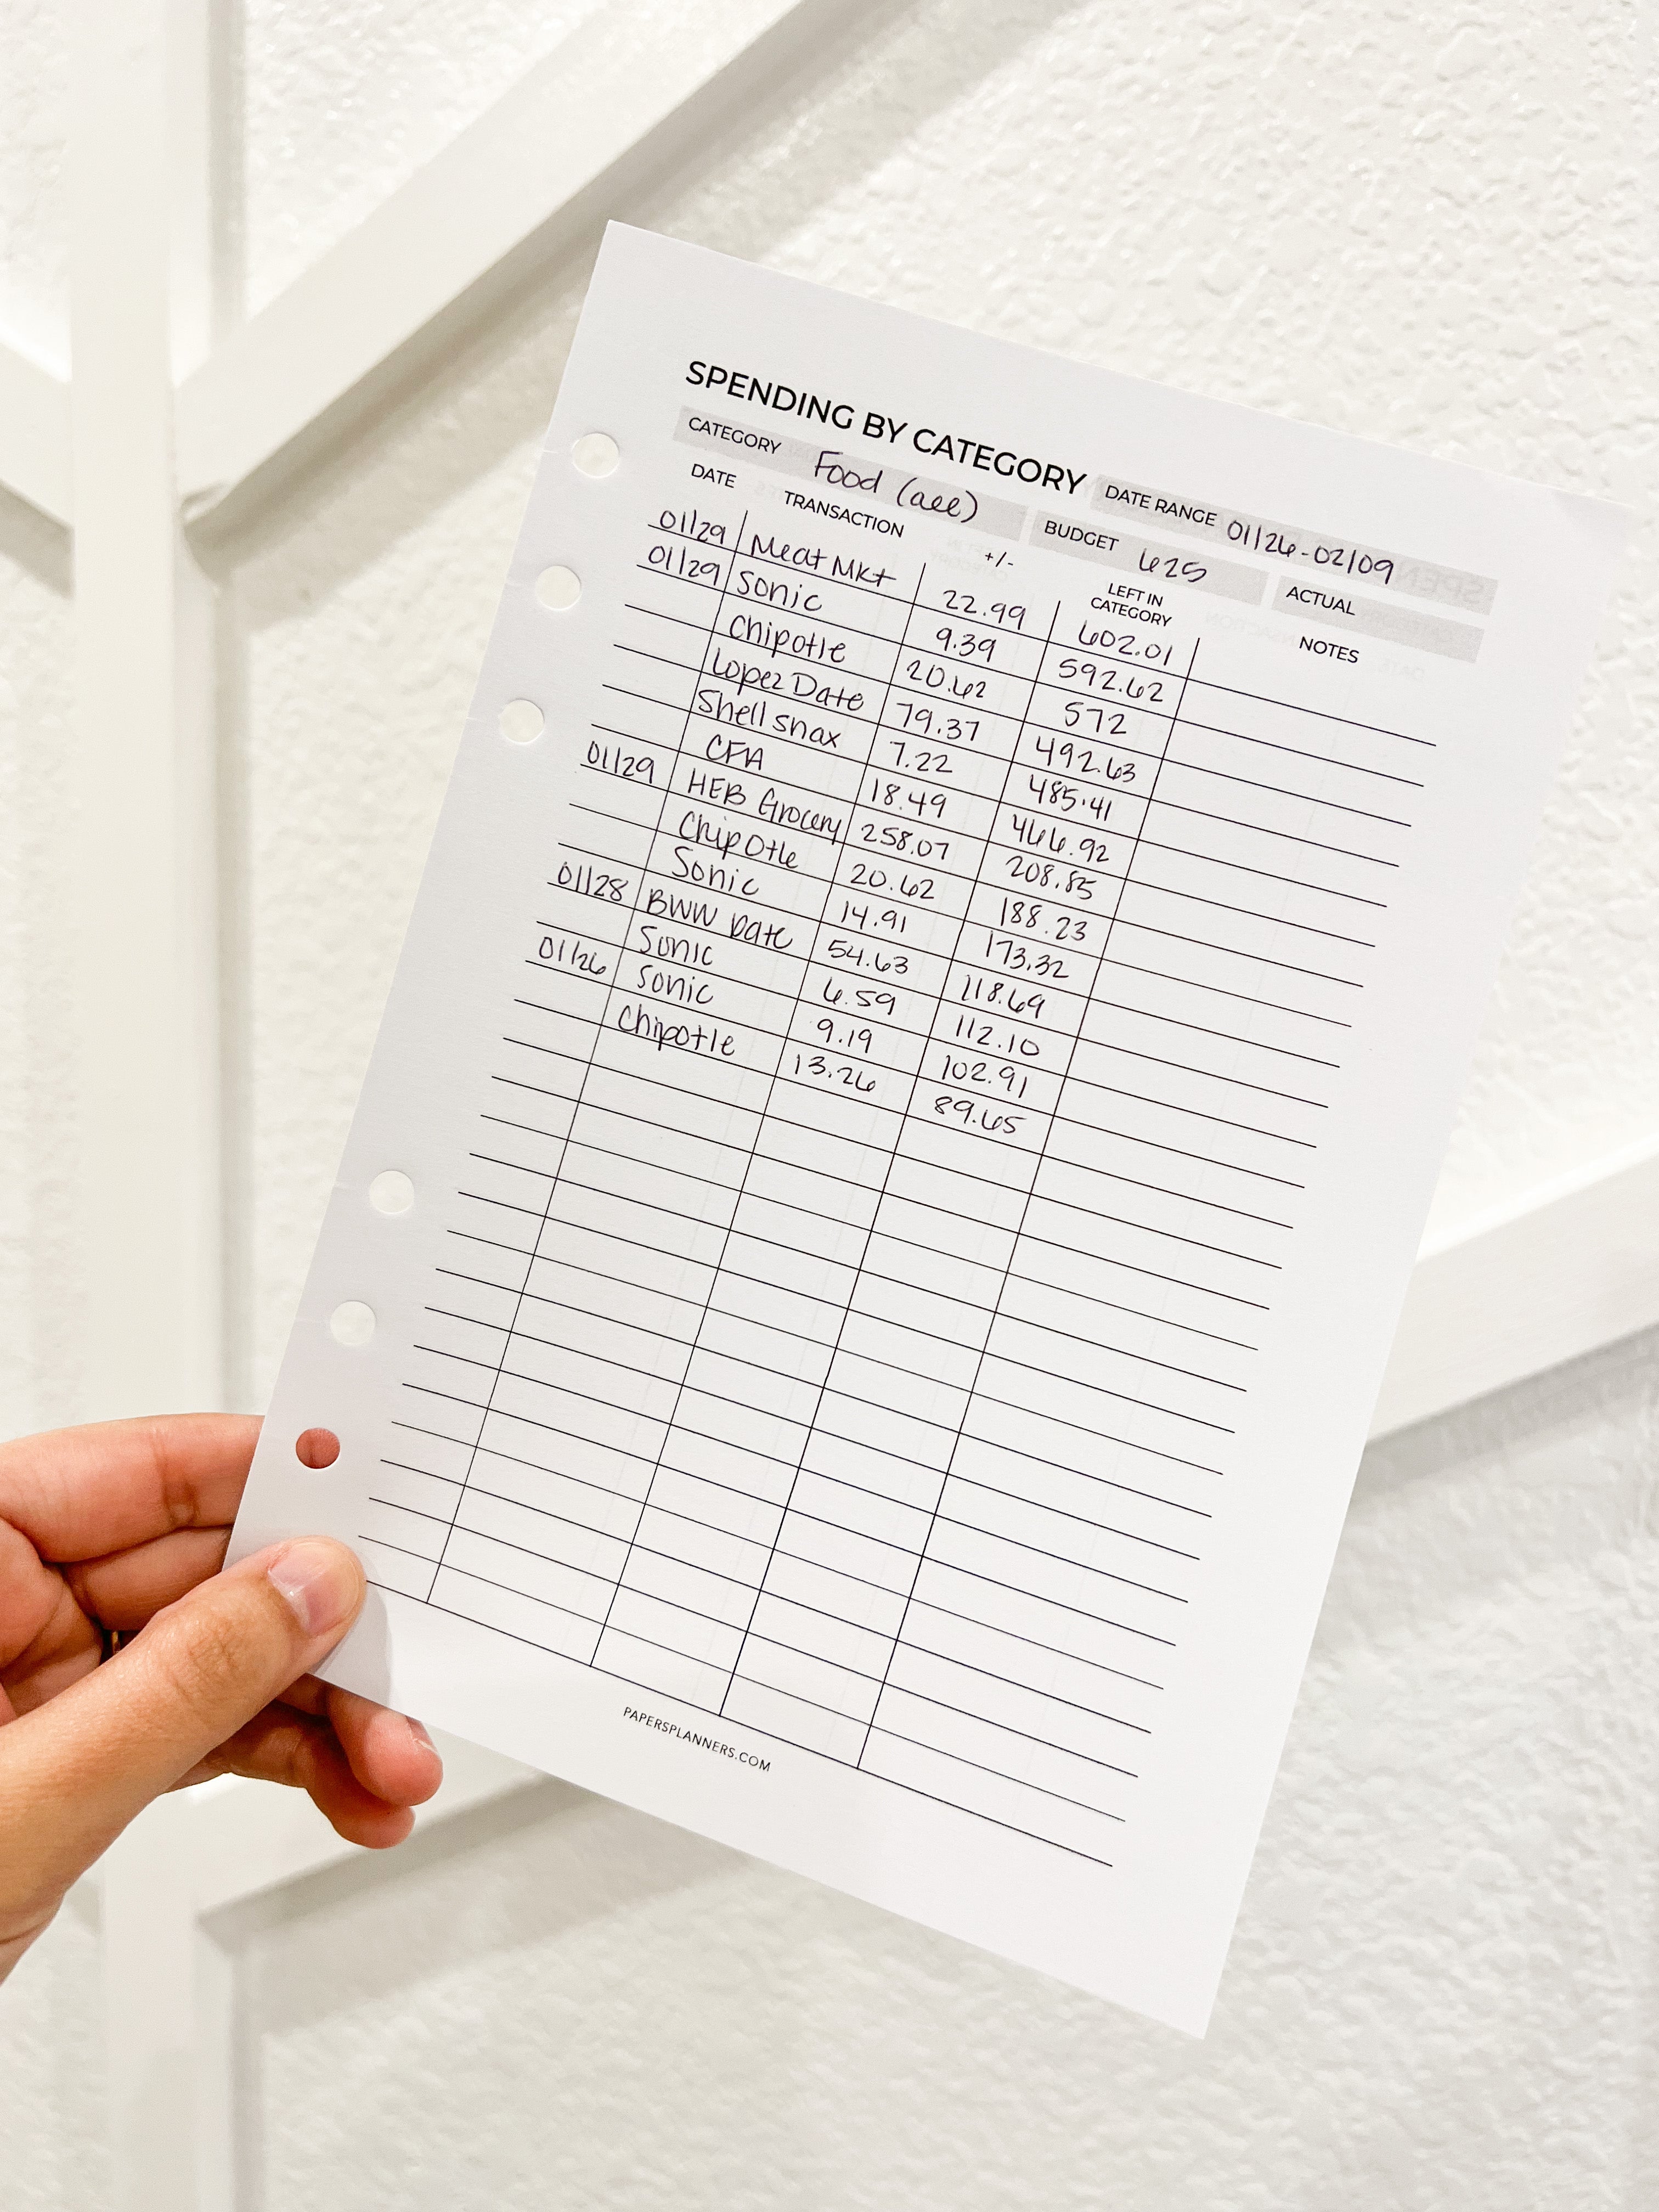 SPENDING BY CATEGORY
CATEGORY Food (all) DATE RANGE 01/26-02/09
BUDGET 625 ACTUAL
DATE TRANSACTION +/- LEFT IN CATEGORY NOTES
01/29 Meat Mkt 22.99 602.01
01/29 Sonic 9.39 592.62
Chipotle 20.62 572
Lopez Date 79.37 492.63
Shell snax 7.22 485.41
CFA 18.49 466.92
01/29 HEB Grocery 258.07 208.85
Chipotle 20.62 188.23
Sonic 14.91 173.32
01/28 BWW Date 54.63 118.69
Sonic 6.59 112.10
01/26 Sonic 9.19 102.91
Chipotle 13.26 89.65
PAPERSPLANNERS.COM